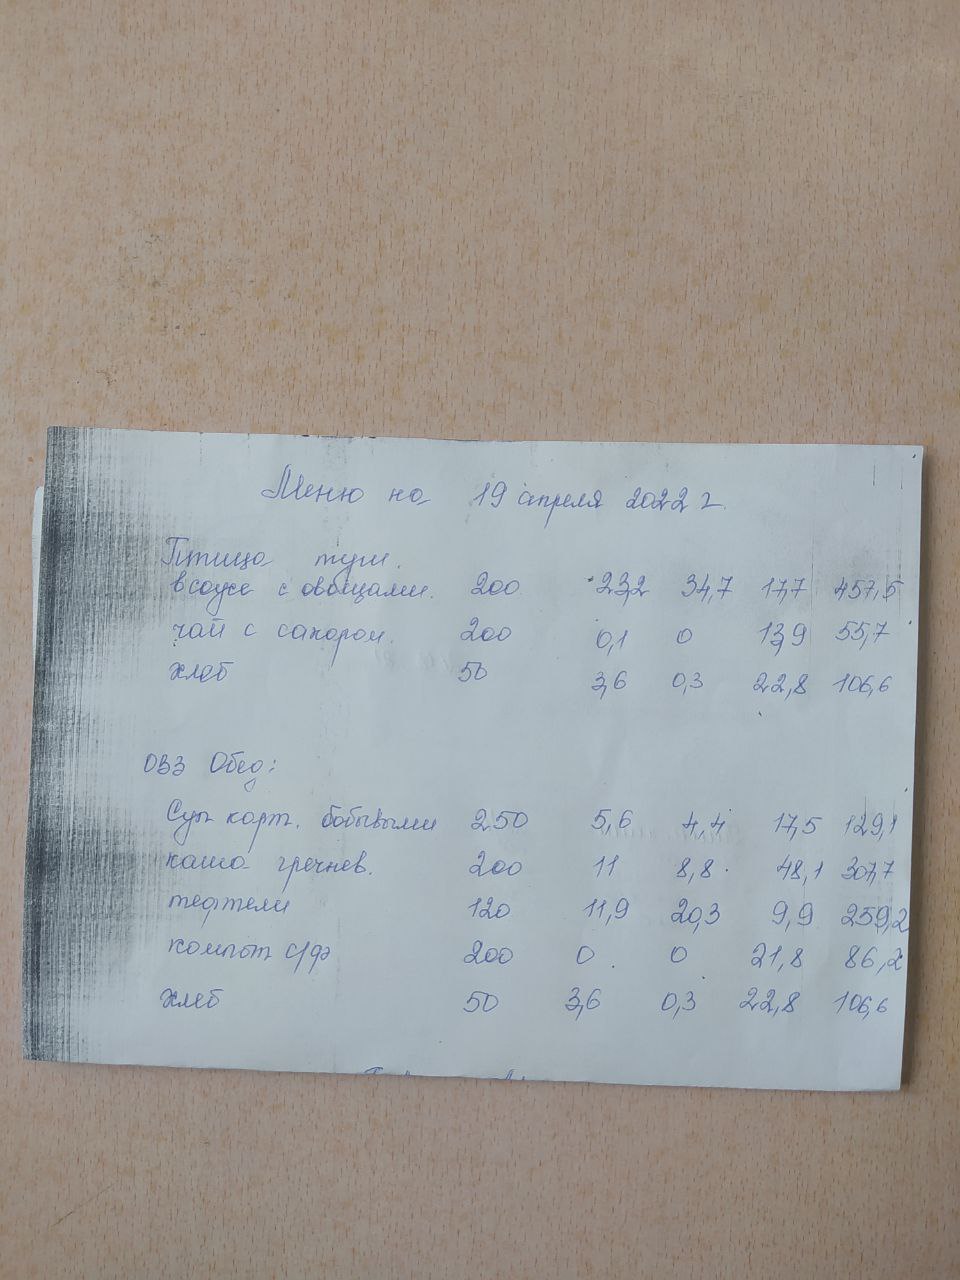 Меню на 19 апреля 2022 г.
Птица туш.
в соусе с овощами. 200 23,2 34,7 17,7 457,5
чай с сахаром. 200 0,1 0 13,9 55,7
хлеб 50 3,6 0,3 22,8 106,6
ОВЗ Обед:
Суп карт. бобывыми 250 5,6 4,4 17,5 129,1
каша гречнев. 200 11 8,8 48,1 307,7
тефтели 120 11,9 20,3 9,9 259,2
компот с/ф 200 0 0 21,8 86,2
хлеб 50 3,6 0,3 22,8 106,6